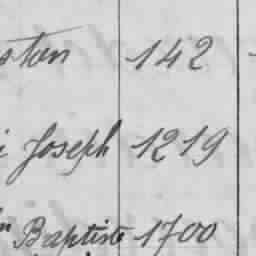 ston 142
i Joseph 1219
Baptiste 1700